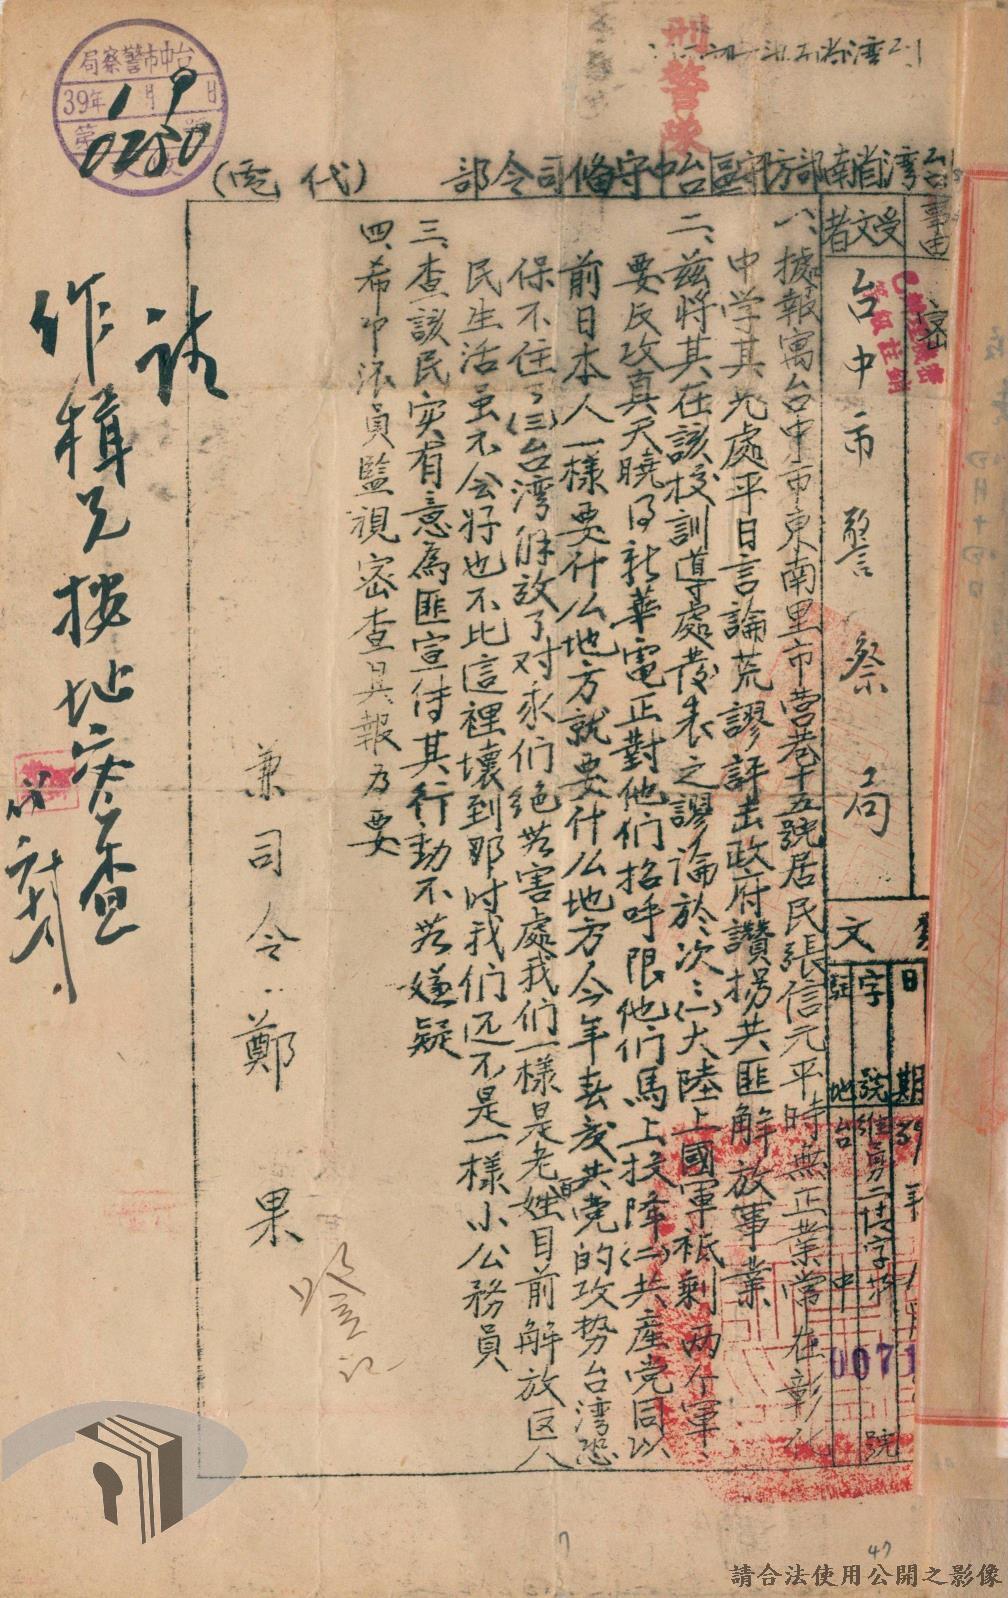 刑警隊
台中市警察局
39年1月9日
0250
台灣省南部防守區台中守備司令部(代電)
事由
密
受文者
台中市警察局
發文
日期
39年1月
字號
維勇二法字第
0071
號
地
台中
一、據報寓台中市東南里市営巷十五號居民張信元平時無正業常在彰化
中学其兄處平日言論荒謬評击政府讚揚共匪解放事業
二、茲將其在該校訓導處發表之謬論於次:(一)大陸上國軍祗剩两个軍、
要反攻真天曉得新華電正對他們招呼限他們馬上投降(二)共産党同以
前日本人一樣要什么地方就要什么地方今年春夜共党的攻势台湾恐
保不住了(三)台湾解放了对我们绝無害處我们一樣是老百姓目前解放区人
民生活虽不会好也不比這裡壞到那时我们还不是一樣小公務員
三、查該民实有意為匪宣传其行動不無嫌疑
四、希即派員監視密查具報为要
兼司令鄭果
請
作楫兄按址密查
47
請合法使用公開之影像